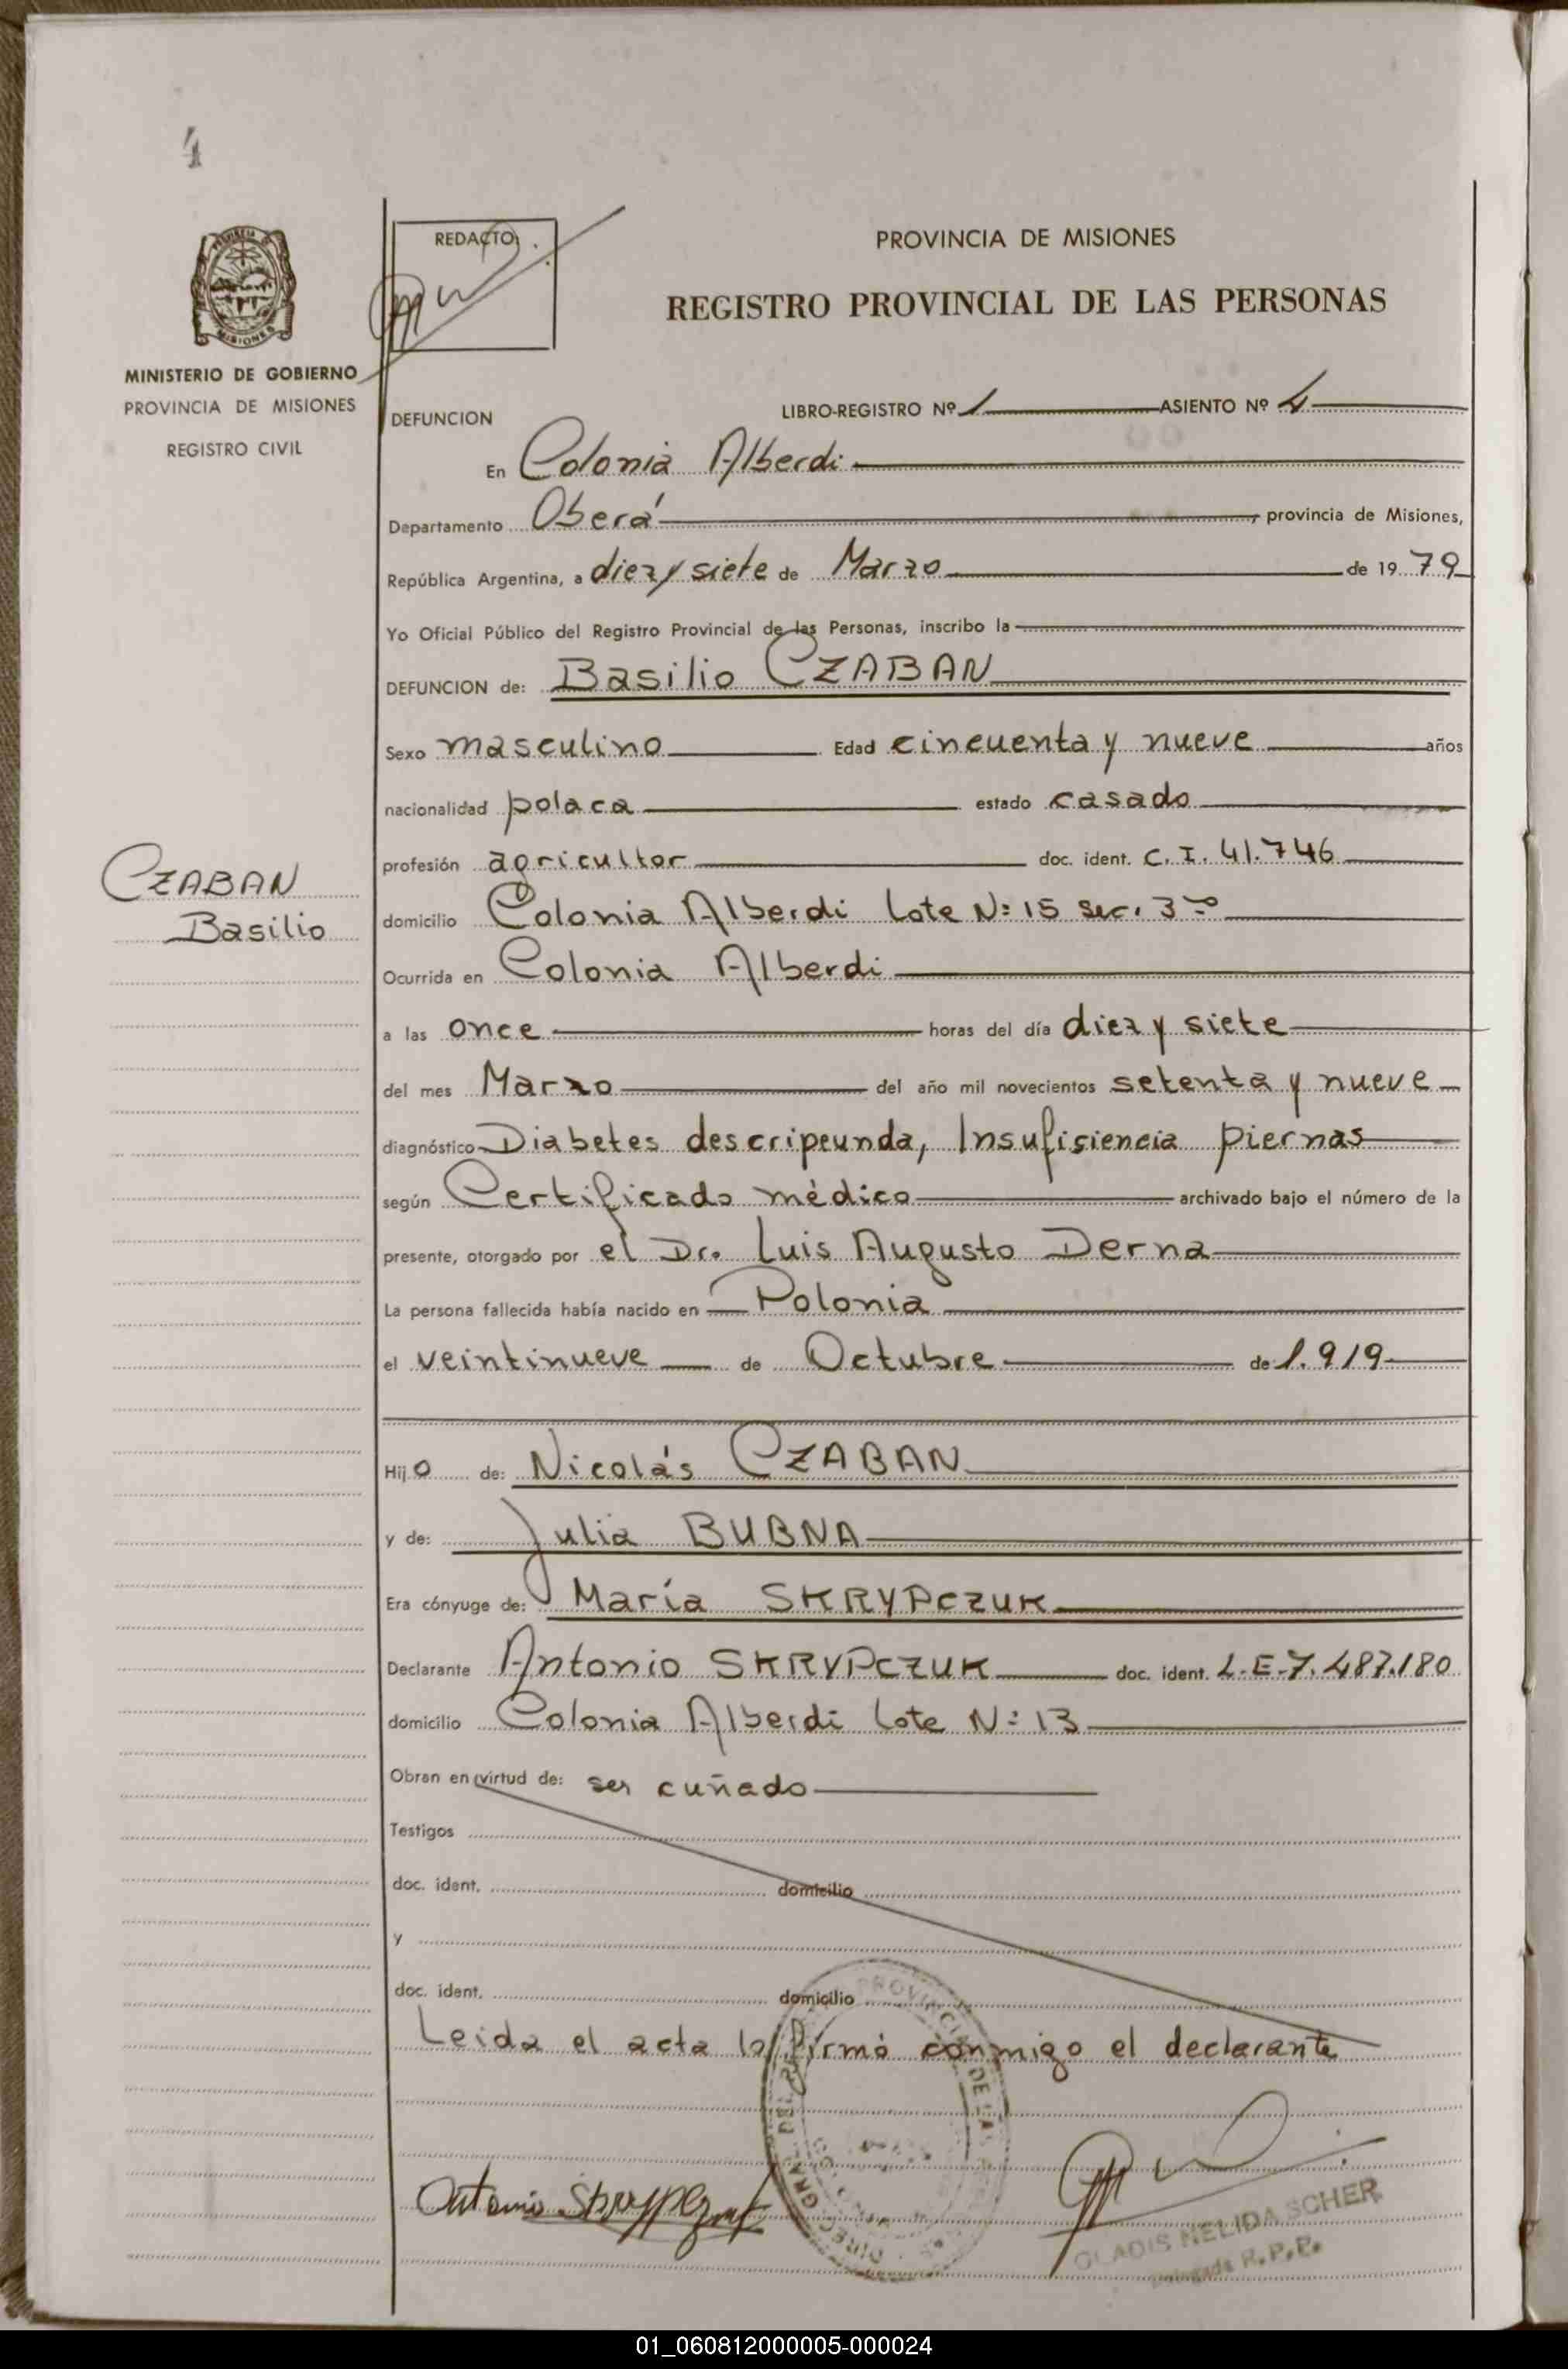 4
PROVINCIA DE
MISIONES
MINISTERIO DE GOBIERNO
PROVINCIA DE MISIONES
REGISTRO CIVIL
REDACTO:
PROVINCIA DE MISIONES
REGISTRO PROVINCIAL DE LAS PERSONAS
DEFUNCION LIBRO-REGISTRO Nº 1 ASIENTO Nº 4
En Colonia Alberdi
Departamento Oberá, provincia de Misiones,
República Argentina, a diez y siete de Marzo de 1979
Yo Oficial Público del Registro Provincial de las Personas, inscribo la
DEFUNCION de: Basilio CZABAN
Sexo masculino Edad cincuenta y nueve años
nacionalidad polaca estado casado
profesión agricultor doc. ident. C. I. 41.746
CZABAN
Basilio
domicilio Colonia Alberdi Lote Nº 15 sec. 3º
Ocurrida en Colonia Alberdi
a las once horas del día diez y siete
del mes Marzo del año mil novecientos setenta y nueve
diagnóstico Diabetes descripeunda, Insufisiencia piernas
según Certificado médico archivado bajo el número de la
presente, otorgado por el Dr. Luis Augusto Derna
La persona fallecida había nacido en Polonia
el veintinueve de Octubre de 1.919
Hijo de: Nicolás CZABAN
y de: Julia BUBNA
Era cónyuge de: María SKRYPCZUK
Declarante Antonio SKRYPCZUK doc. ident. L.E. 7.487.180
domicilio Colonia Alberdi Lote Nº 13
Obran en virtud de: ser cuñado
Testigos
doc. ident. domicilio
y
doc. ident. domicilio
Leida el acta la firmó conmigo el declarante
Antonio Skrypczuk
GLADIS NELIDA SCHER
R.P.P.
01_060812000005-000024